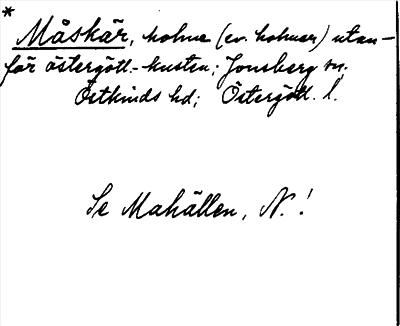 * Måskär, holme (ev. holmar) utan-
för östergötl.-kusten; Jonsberg sn,
Östkinds hd; Östergötl. l.
Se Mahällen, N.!